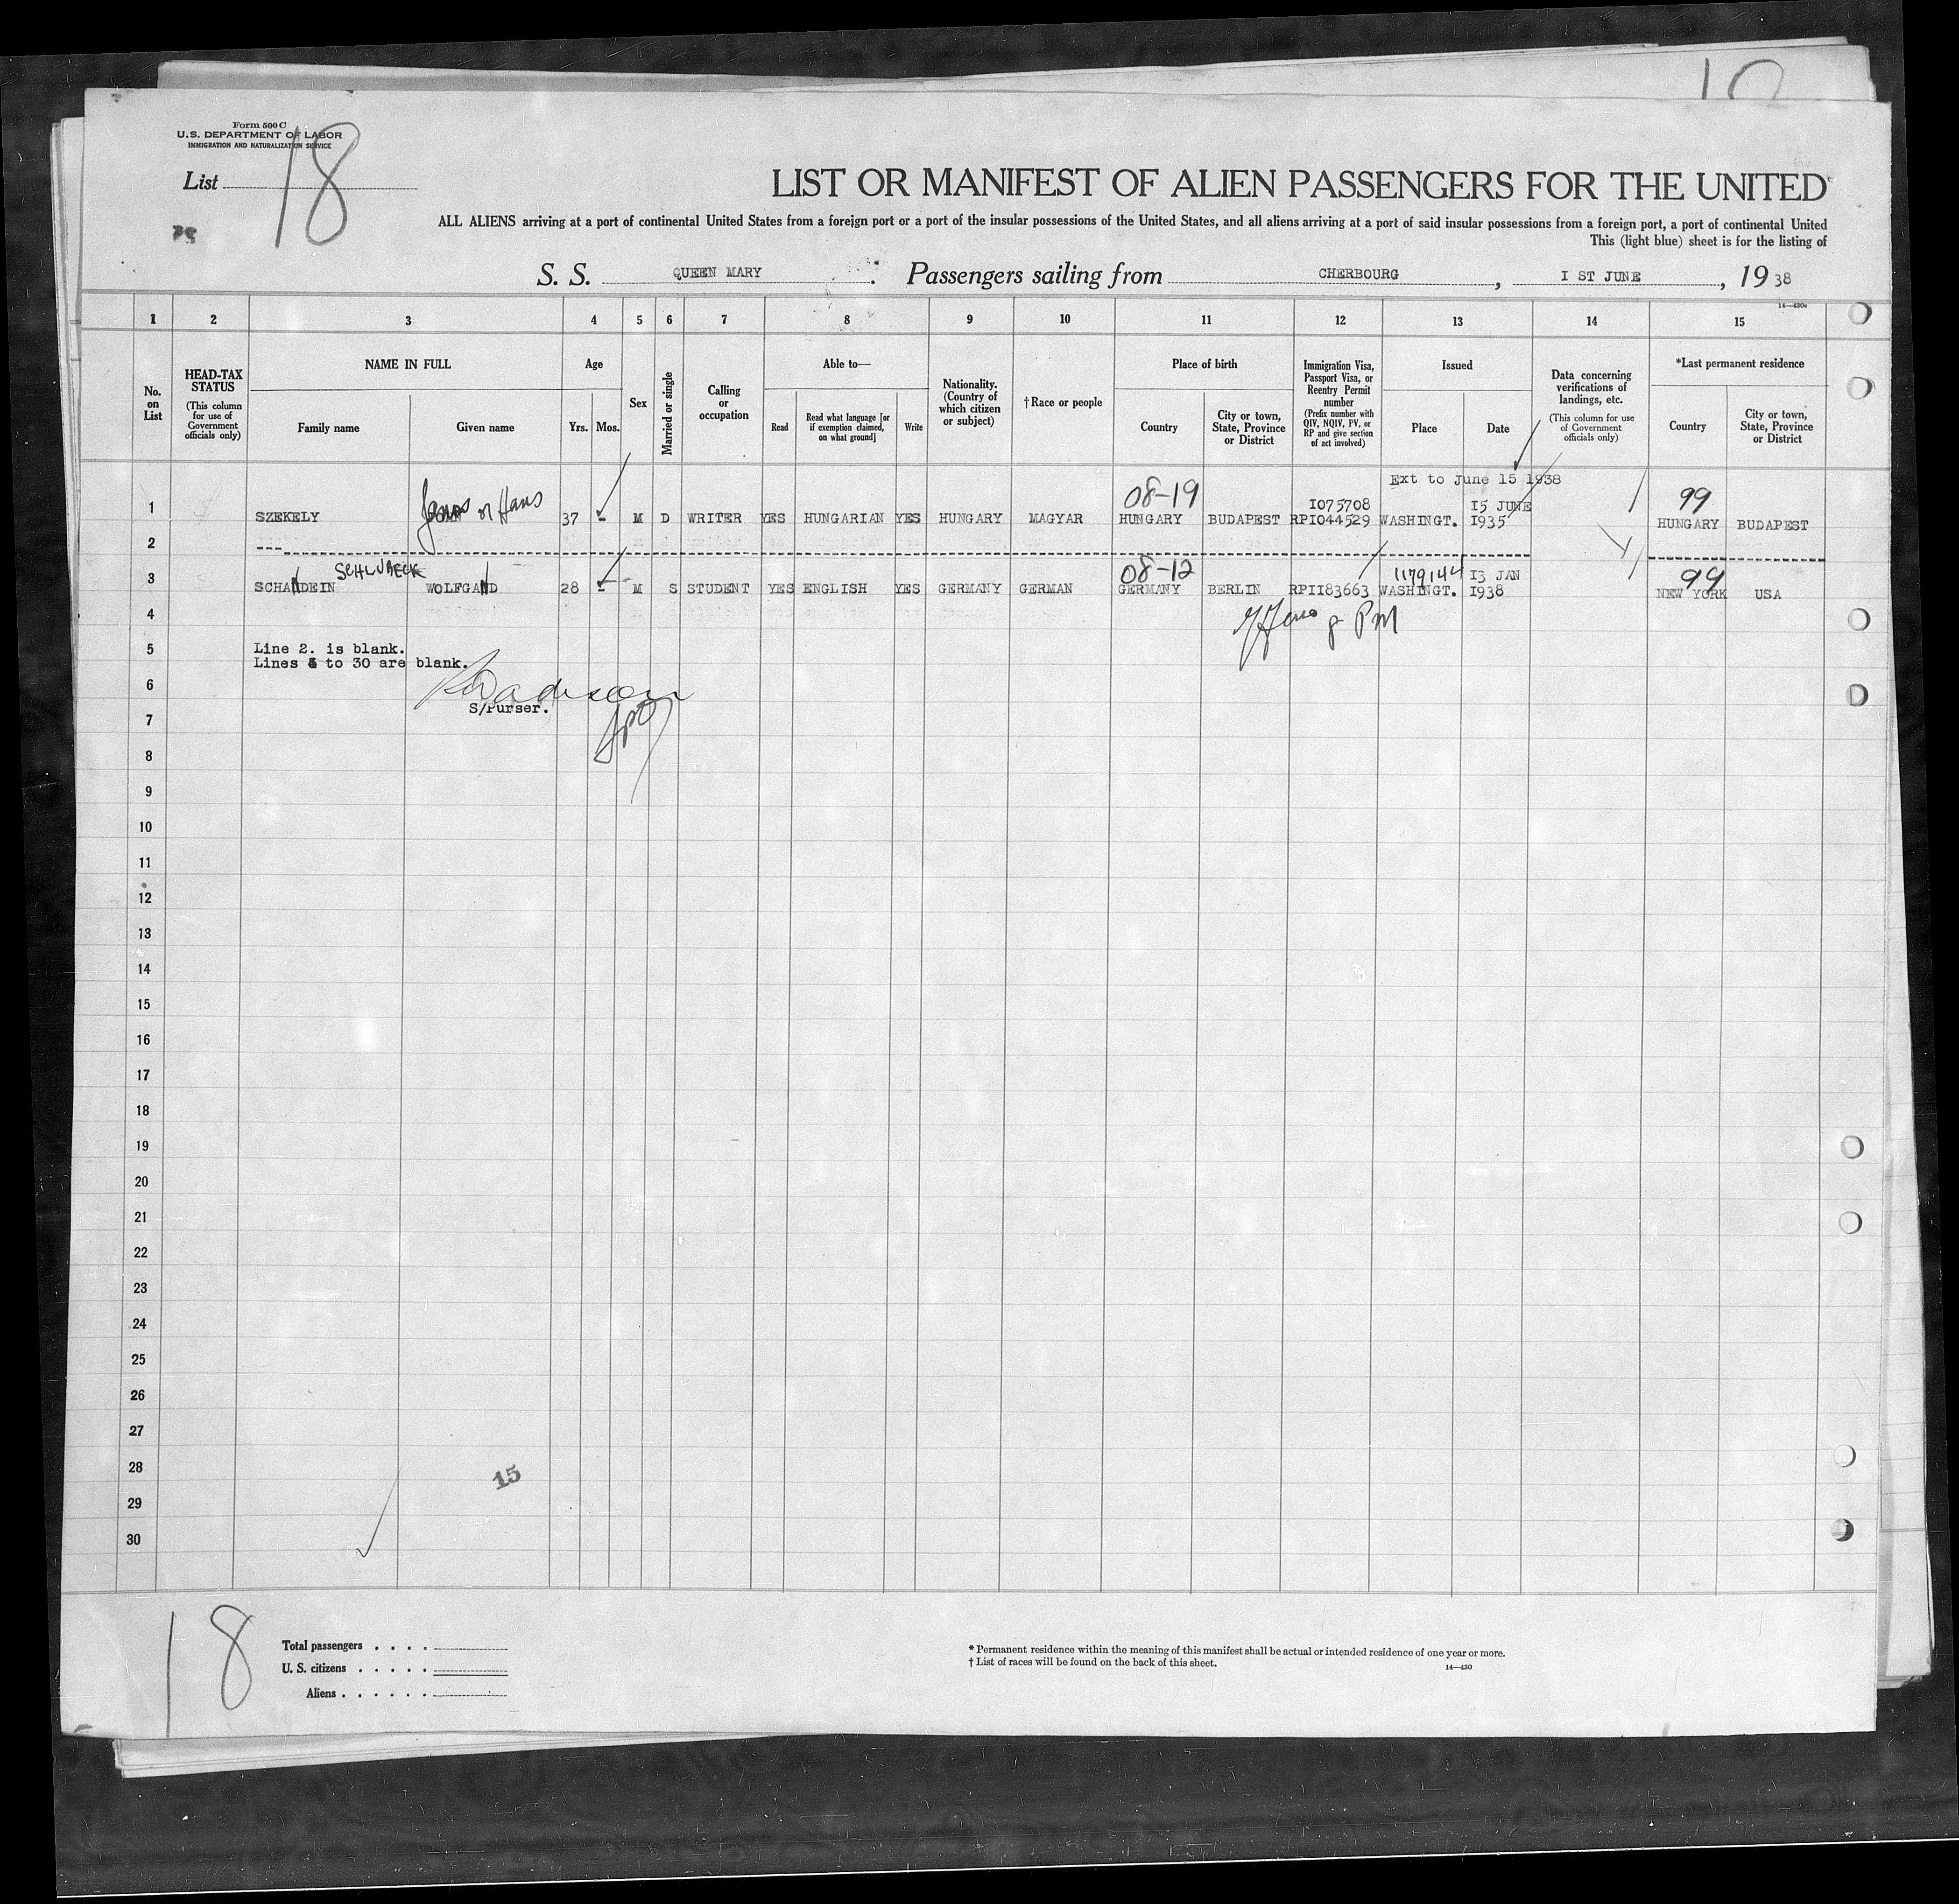 Form 500 C
U.S. DEPARTMENT OF LABOR
IMMIGRATION AND NATURALIZATION SERVICE
List 18
LIST OR MANIFEST OF ALIEN PASSENGERS FOR THE UNITED
ALL ALIENS arriving at a port of continental United States from a foreign port or a port of the insular possessions of the United States, and all aliens arriving at a port of said insular possessions from a foreign port, a port of continental United
This (light blue) sheet is for the listing of
S. S. QUEEN MARY. Passengers sailing from CHERBOURG, I ST JUNE, 1938
14—430c
1 2 3 4 5 6 7 8 9 10 11 12 13 14 15
No. on List
HEAD-TAX STATUS
(This column for use of Government officials only)
NAME IN FULL
Family name Given name
Age
Yrs. Mos.
Sex
Married or single
Calling or occupation
Able to—
Read
Read what language [or if exemption claimed, on what ground]
Write
Nationality. (Country of which citizen or subject)
†Race or people
Place of birth
Country
City or town, State, Province or District
Immigration Visa, Passport Visa, or Reentry Permit number
(Prefix number with QIV, NQIV, PV, or RP and give section of act involved)
Issued
Place Date
Data concerning verifications of landings, etc.
(This column for use of Government officials only)
*Last permanent residence
Country
City or town, State, Province or District
Ext to June 15 1938
Janos or Hans 08-19 I075708 I5 JUNE 99
1 SZEKELY 37 - M D WRITER YES HUNGARIAN YES HUNGARY MAGYAR HUNGARY BUDAPEST RPI044529 WASHINGT. I935 HUNGARY BUDAPEST
2 ---
SCHLUBECK 08-12 1179144 I3 JAN 99
3 SCHANDEIN WOLFGAND 28 - M S STUDENT YES ENGLISH YES GERMANY GERMAN GERMANY BERLIN RPII83663 WASHINGT. I938 NEW YORK USA
4
PM
5 Line 2. is blank.
Lines 4 to 30 are blank.
6
S/Purser.
7
8
9
10
11
12
13
14
15
16
17
18
19
20
21
22
23
24
25
26
27
28
15
29
30
18
Total passengers . . . .
U. S. citizens . . . . .
Aliens . . . . . .
* Permanent residence within the meaning of this manifest shall be actual or intended residence of one year or more.
† List of races will be found on the back of this sheet.
14—430